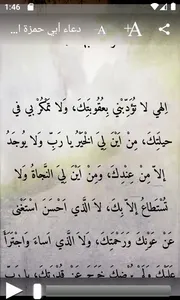 1:46
دعاء أبي حمزة ا...
A
+A
اِلهي لا تُؤَدِّبْني بِعُقُوبَتِكَ، وَلا تَمْكُرْ بي في
حيلَتِكَ، مِنْ اَيْنَ لِيَ الْخَيْرُ يا رَبِّ وَلا يُوجَدُ
إلاّ مِنْ عِنْدِكَ، وَمِنْ اَيْنَ لِيَ النَّجاةُ وَلا
تُسْتَطاعُ اِلاّ بِكَ، لاَ الَّذي اَحْسَنَ اسْتَغْنى
عَنْ عَوْنِكَ وَرَحْمَتِكَ، وَلاَ الَّذي اَساءَ وَاجْتَرَأَ
عَلَيْكَ وَلَمْ يُرْضِكَ خَرَجَ عَنْ قُدْرَتِكَ، يا رَبِّ